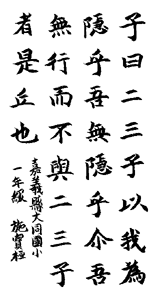 子曰二三子以我為
隱乎吾無隱乎尒吾
無行而不與二三子
者是丘也
嘉義縣大同國小
一年級 施寶